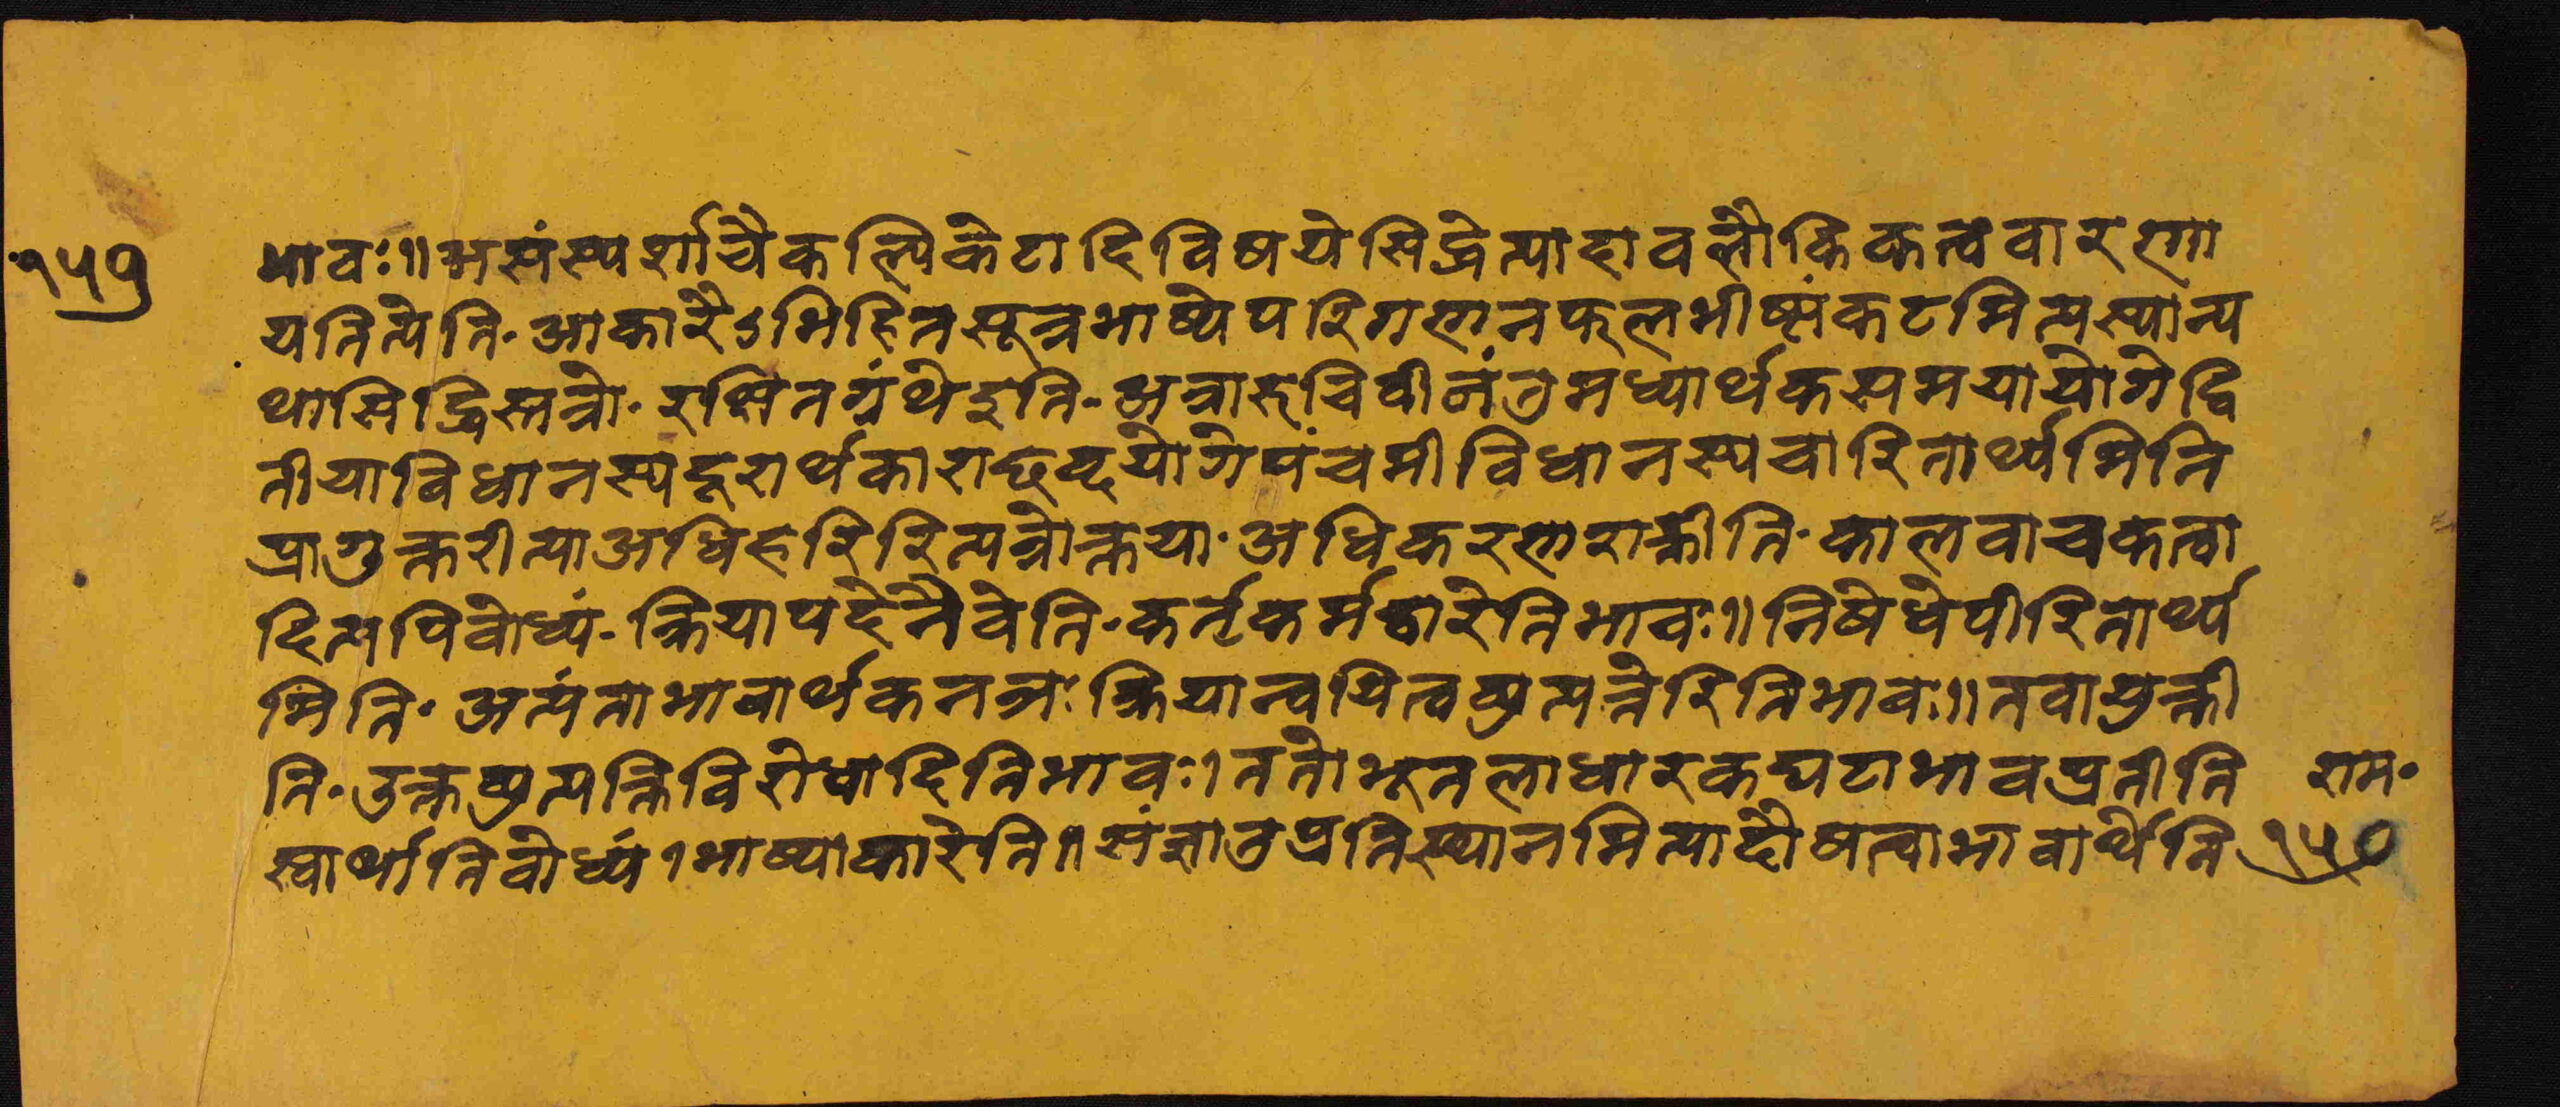 १५७
भावः॥ असंस्पर्शाचैकल्पिकेटादिविषयेसिद्धेत्यादावलौकिकत्ववारणा
यतित्येति· आकारेऽभिहितसूत्रभाष्येपरिगणनफलभीष्मंकटमित्यस्यान्य
थासिद्धिस्तत्रो· रक्षितग्रंथेइति· अत्रारुचिवीजंतुमध्यार्थकसमयायोगेद्वि
तीयाविधानस्यदूरार्थकाराछब्दयोगेपंचमीविधानस्यचारितार्थ्यमिति
प्रागुक्तरीत्याअधिहरिरित्यत्रोक्तया· अधिकरणशक्तीति· कालवाचकत्वा
दित्यपिवोध्यं· क्रियापदेनैवेति· कर्तृकर्मद्वारेतिभावः॥ निषेधेपीरितार्थ्य
मिति· अत्यंताभावार्थकनञः क्रियान्वयित्वव्युत्पत्तेरितिभावः॥ तवाप्युक्ती
ति· उक्तव्युत्पत्तिविरोधादितिभावः। ततोभूतलाधारकघटाभावप्रतीति
स्वार्थातिवोध्यं। भाष्याकारेति॥ संज्ञातुप्रतिस्थानमित्यादौषत्वाभावार्थेति
राम·
१५७